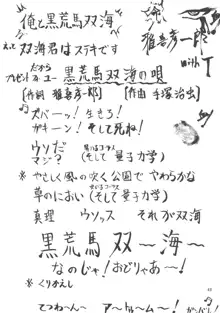 俺と黒荒馬双海
雅吾彦一郎
with T
えって 双海君はステキです
だから
プレゼントフォーユー 黒荒馬双海の唄
[作詞 雅吾彦一郎] [作曲 手塚治虫]
ズバーッ!生きろ!
ガキーン!そして死ね!
ウソだ
マジ? (そして量子力学)
※やさしく風の吹く公園でやわらかな
草のにおい(そして量子力学)
真理 ウソッス それが双海
黒荒馬双〜海〜
なのじゃ!おどりゃあ〜!
※くりかえし
てつわ〜ん アートルーム〜!